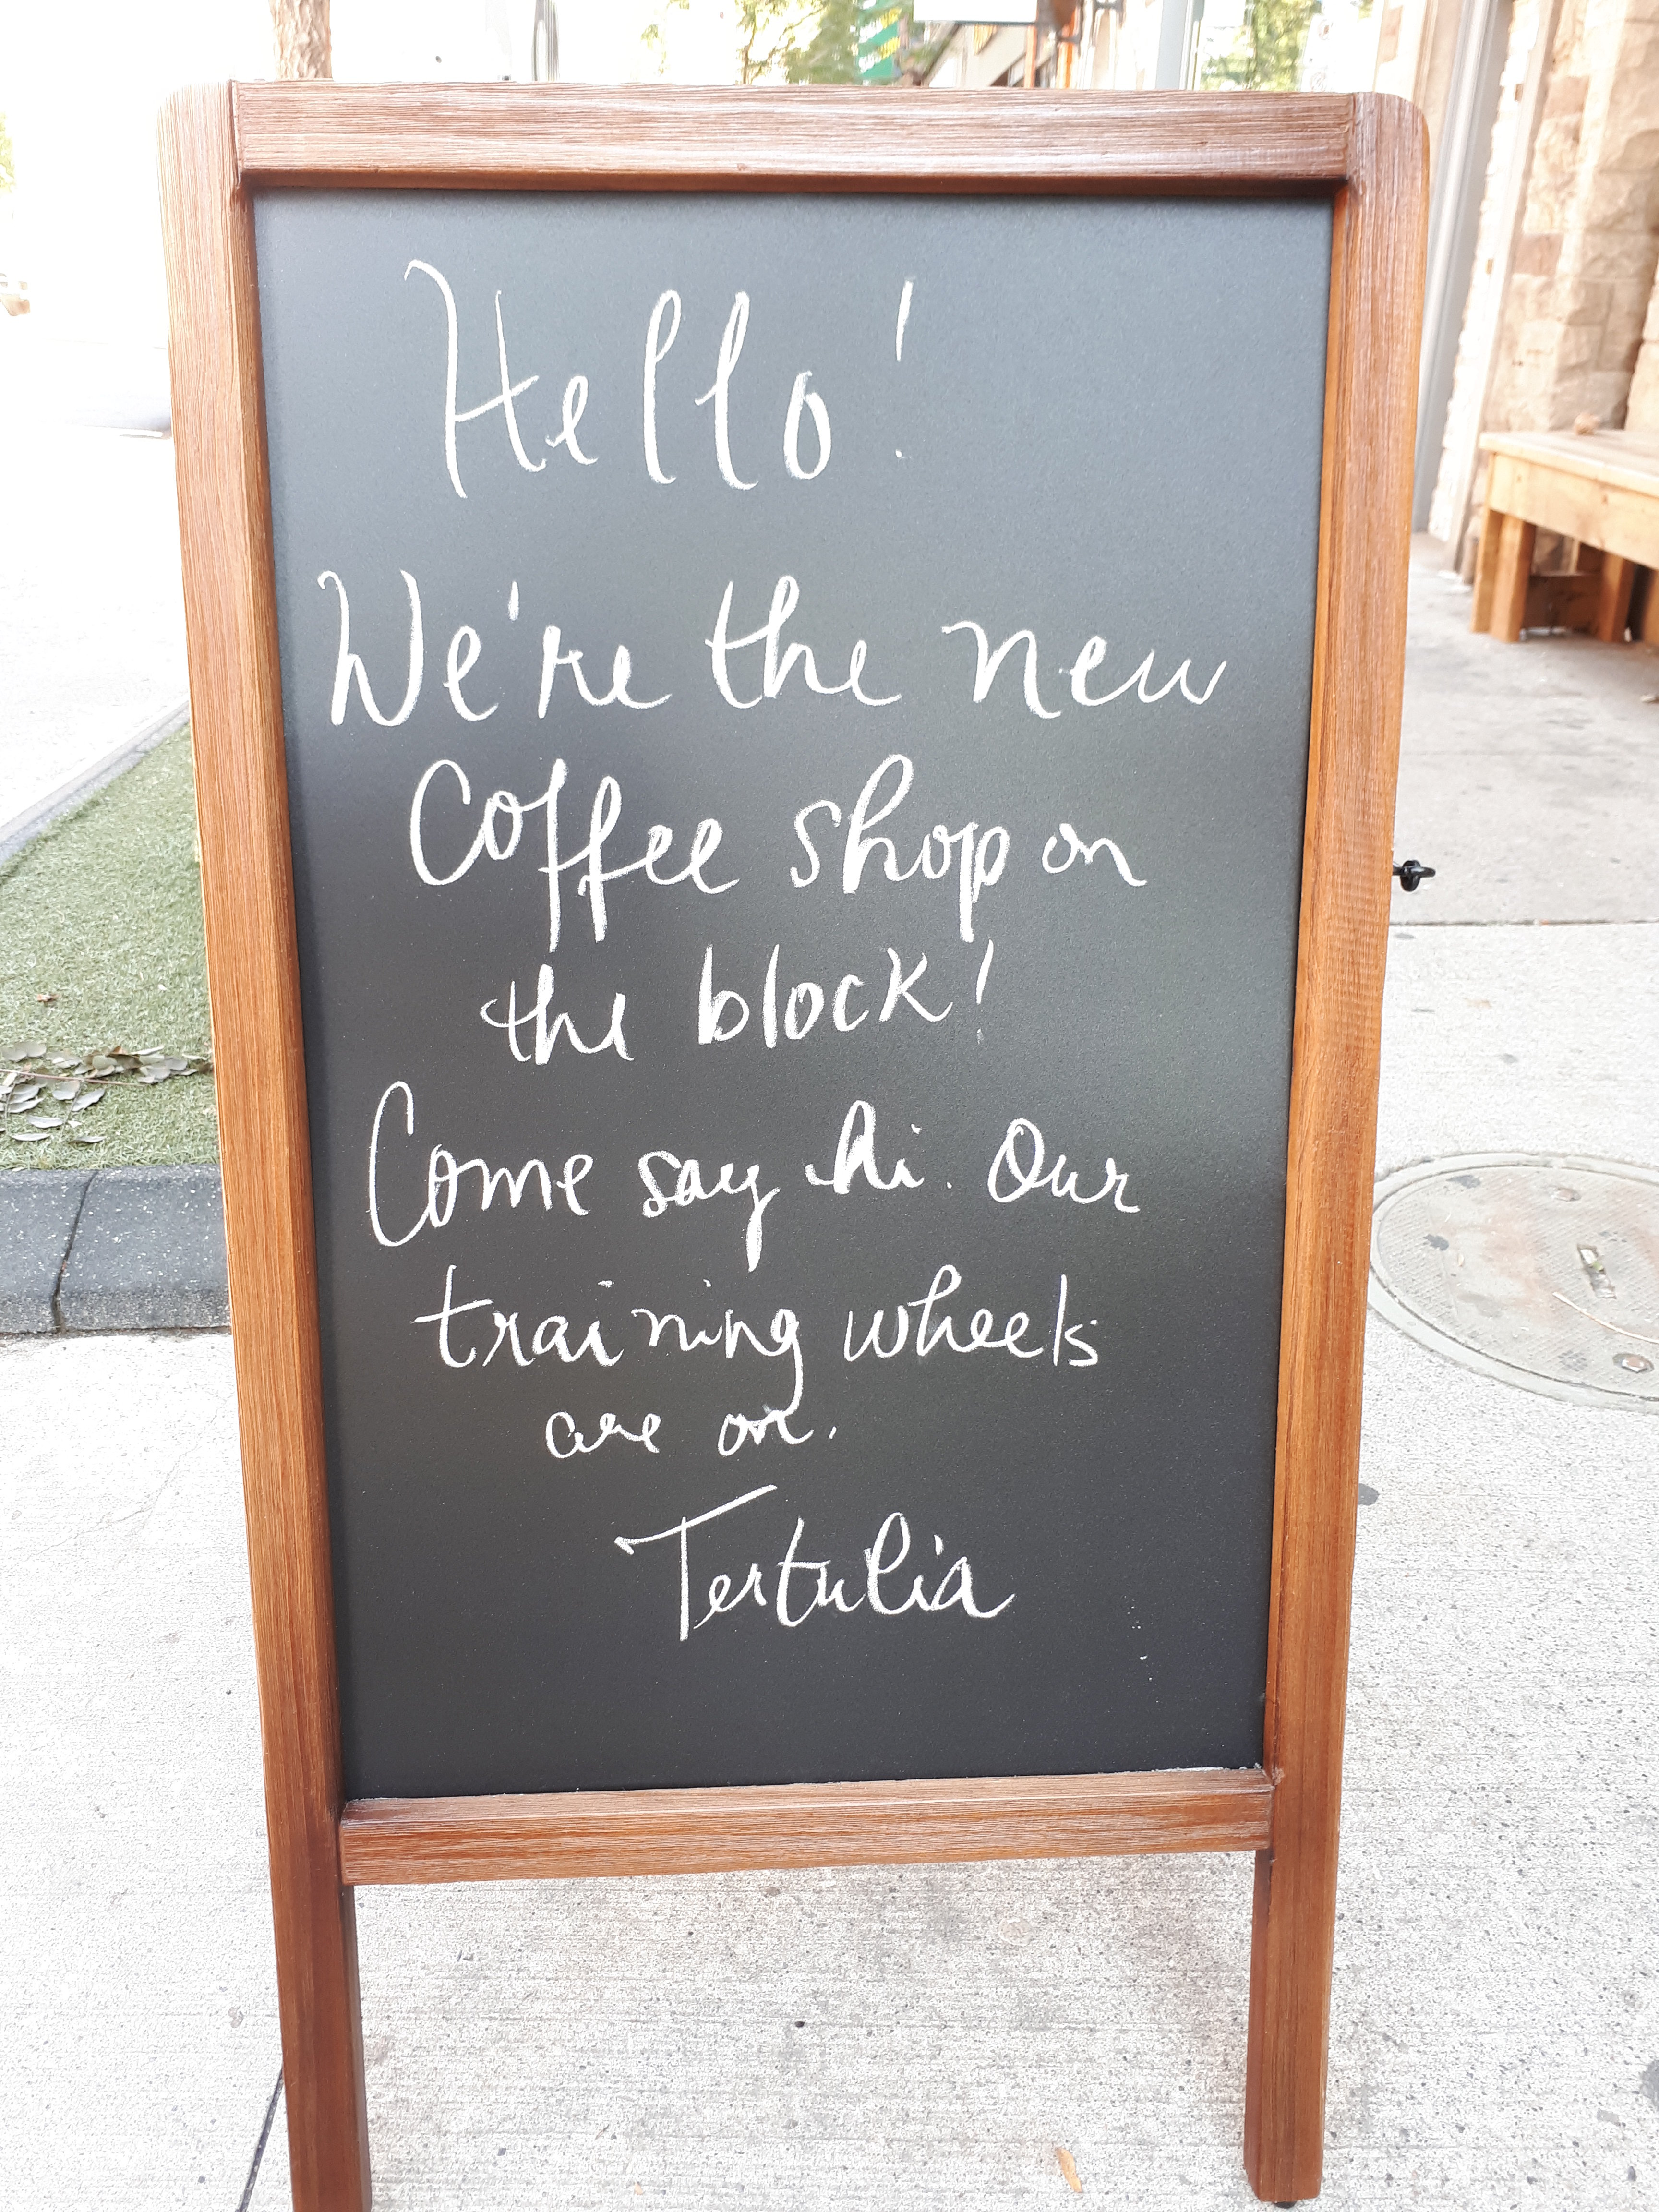 Hello!
We're the new
Coffee shop on
the block!
Come say hi. Our
training wheels
are on.
Tertulia